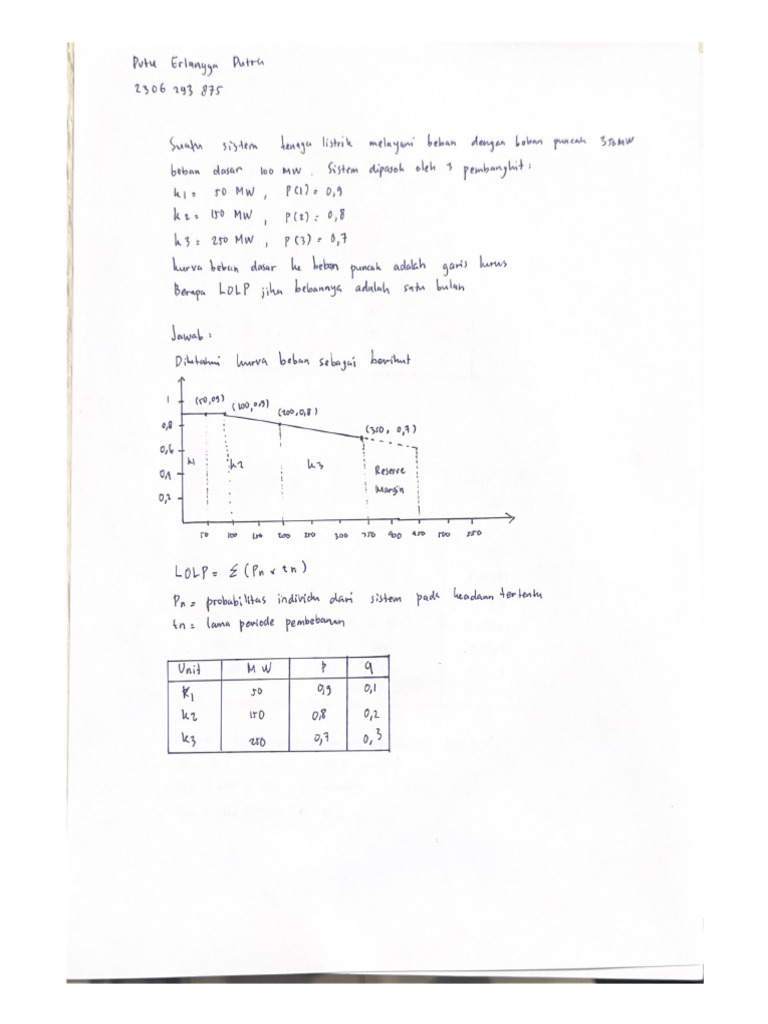 Putu Erlangga Putra
2306 293 875
Suatu sistem tenaga listrik melayani beban dengan beban puncak 350 MW
beban dasar 100 MW. Sistem dipasok oleh 3 pembangkit:
k1 = 50 MW, P(1) = 0,9
k2 = 150 MW, P(2) = 0,8
k3 = 250 MW, P(3) = 0,7
kurva beban dasar ke beban puncak adalah garis lurus
Berapa LOLP jika bebannya adalah satu bulan
Jawab:
Diketahui kurva beban sebagai berikut
1
0,8
0,6
0,4
0,2
(50,0,9)
(100,0,9)
(200,0,8)
(350, 0,7)
k1
k2
k3
Reserve
Margin
50 100 150 200 250 300 350 400 450 500 550
LOLP = Σ (Pn × tn)
Pn = probabilitas individu dari sistem pada keadaan tertentu
tn = lama periode pembebanan
Unit MW P q
K1 50 0,9 0,1
k2 150 0,8 0,2
k3 250 0,7 0,3